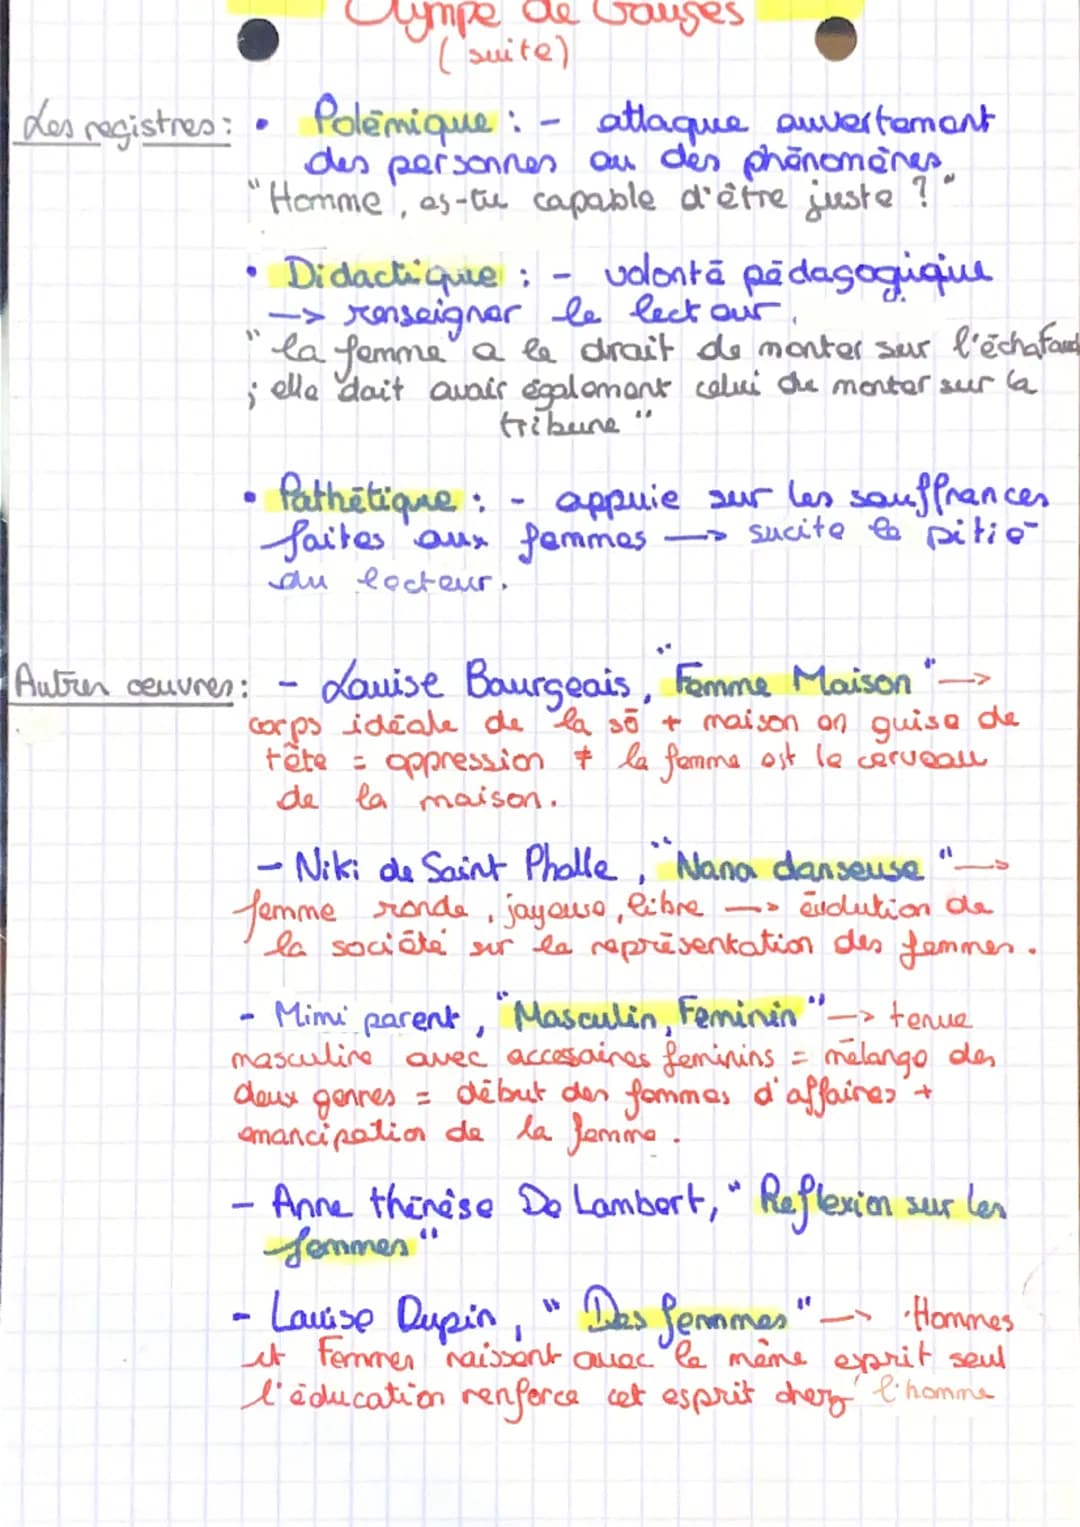 Olympe de Gouges
(suite)
Les registres : • Polémique : - attaque ouvertement
des personnes ou des phénomènes
"Homme, es-tu capable d'être juste ? "
• Didactique : - volonté pédagogique
-> renseigner le lecteur.
"la femme a le droit de monter sur l'échafaud
; elle doit avoir également celui de monter sur la
tribune "
• Pathétique : - appuie sur les souffrances
faites aux femmes -> sucite la pitié
du lecteur.
Autres œuvres : - Louise Bourgeois, "Femme Maison" ->
corps idéale de la sō + maison en guise de
tête = oppression ≠ la femme est le cerveau
de la maison.
- Niki de Saint Phalle, "Nana danseuse" ->
femme ronde, joyeuse, libre -> évolution de
la société sur la représentation des femmes.
- Mimi parent, "Masculin, Feminin" -> tenue
masculine avec accesoires feminins = mélange des
deux genres = début des femmes d'affaires +
emancipation de la femme.
- Anne thérèse De Lambert, "Reflexion sur les
femmes"
- Louise Dupin, "Des femmes" -> Hommes
et Femmes naissent avec le même esprit seul
l'éducation renforce cet esprit chez l'homme